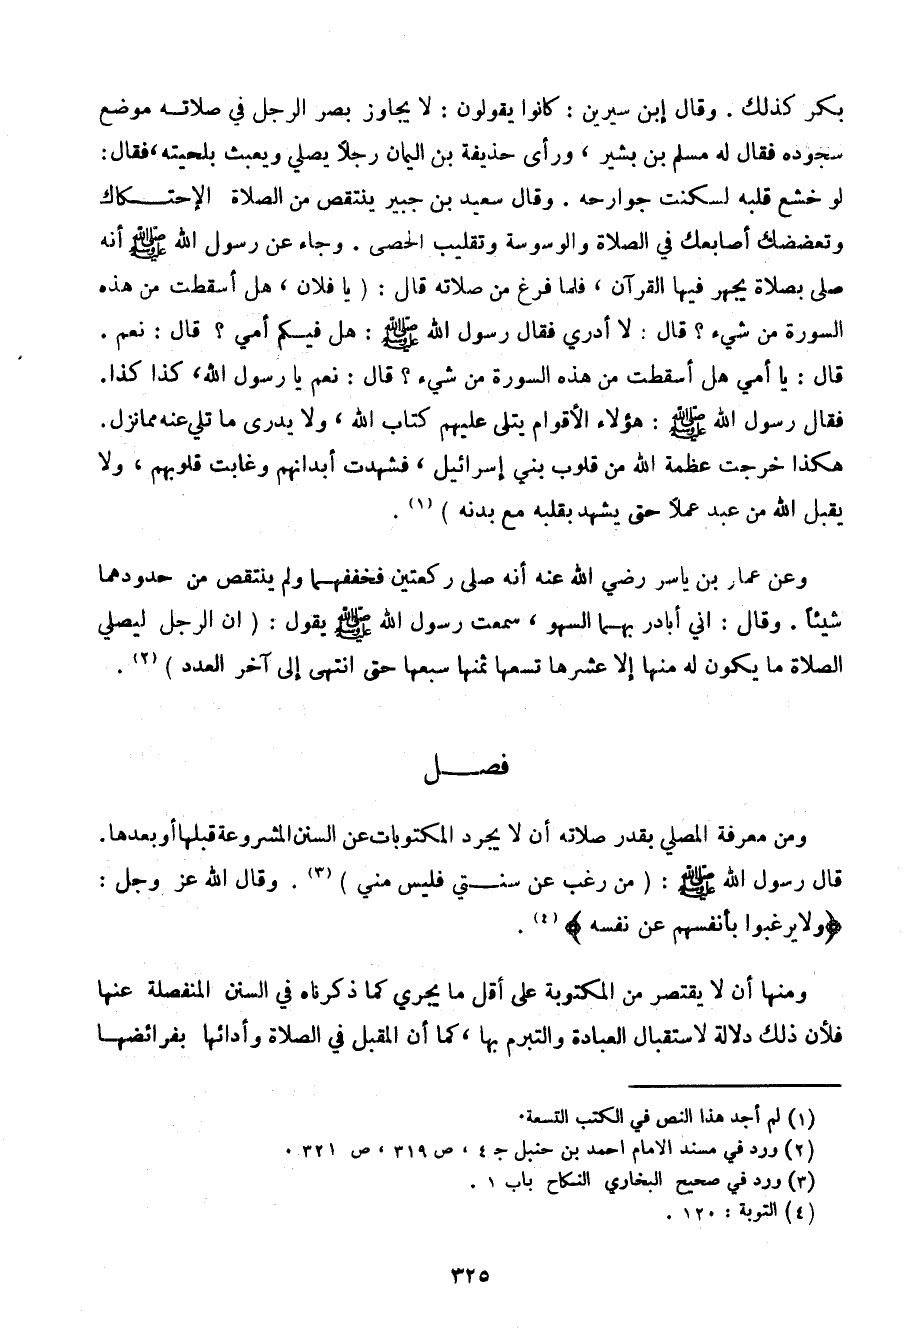 بكر كذلك . وقال إبن سيرين : كانوا يقولون : لا يجاوز بصر الرجل في صلاتـه موضع
سجوده فقال له مسلم بن بشير ، ورأى حذيفة بن اليمان رجلاً يصلي ويعبث بلحيته ، فقال :
لو خشع قلبه لسكنت جوارحه . وقال سعيد بن جبير ينتقص من الصلاة الإحتـكاك
وتعضضك أصابعك في الصلاة والوسوسة وتقليب الحصى . وجاء عن رسول الله ﷺ أنه
صلى بصلاة يجهر فيها القرآن ، فلما فرغ من صلاته قال : ( يا فلان ، هل أسقطت من هذه
السورة من شيء ؟ قال : لا أدري فقال رسول الله ﷺ : هل فيـكم أمي ؟ قال : نعم .
قال : يا أمي هل أسقطت من هذه السورة من شيء ؟ قال : نعم يا رسول الله ، كذا كذا .
فقال رسول الله ﷺ : هؤلاء الأقوام يتلى عليهم كتاب الله ، ولا يدرى ما تلي عنه ممانزل .
هكذا خرجت عظمة الله من قلوب بني إسرائيل ، فشهدت أبدانهم وغابت قلوبهم ، ولا
يقبل الله من عبد عملاً حتى يشهد بقلبه مع بدنه ) (١) .
وعن عمار بن ياسر رضي الله عنه أنه صلى ركعتين فخففهـما ولم ينتقص من حدودهما
شيئاً . وقال : اني أبادر بهـما السهو ، سمعت رسول الله ﷺ يقول : ( ان الرجل ليصلي
الصلاة ما يكون له منها إلا عشرها تسعها ثمنها سبعها حتى انتهى إلى آخر العدد ) (٢) .
فصـــل
ومن معرفة المصلي بقدر صلاته أن لا يجرد المكتوبات عن السنن المشروعة قبلها أو بعدها .
قال رسول الله ﷺ : ( من رغب عن سنـتي فليس مني ) (٣) . وقال الله عز وجل :
﴿ولا يرغبوا بأنفسهم عن نفسه﴾ (٤) .
ومنها أن لا يقتصر من المكتوبة على أقل ما يجري كما ذكرناه في السنن المنفصلة عنها
فلأن ذلك دلالة لاستقبال العبادة والتبرم بها ، كما أن المقبل في الصلاة وأدائها بفرائضهـا
(١) لم أجد هذا النص في الكتب التسعة .
(٢) ورد في مسند الامام احمد بن حنبل جـ ٤ ، ص ٣١٩ ، ص ٣٢١ .
(٣) ورد في صحيح البخاري النكاح باب ١ .
(٤) التوبة : ١٢٠ .
٣٢٥